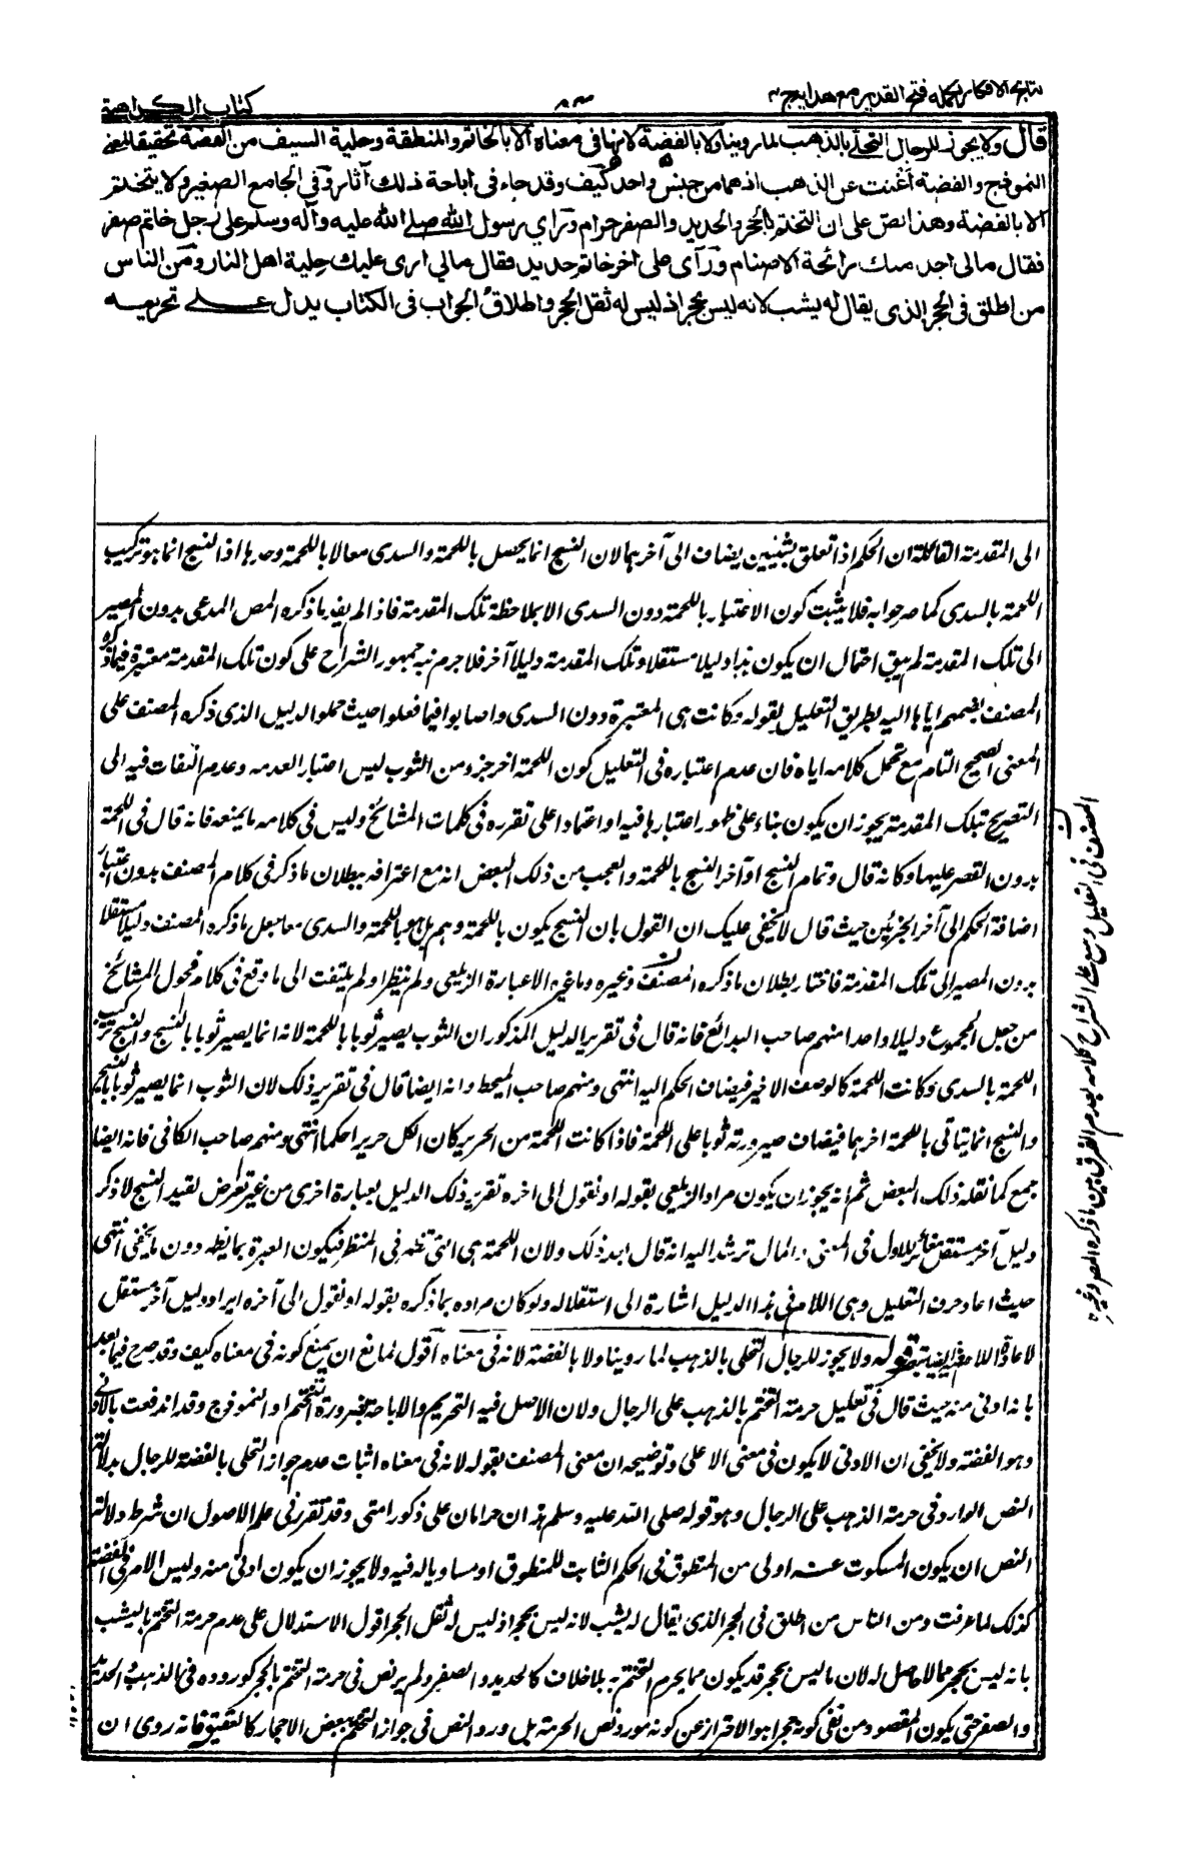 نتائج الافكار تكمله فتح القدير مع هدايه ج ٤
٨٣
كتاب الكراهية
قال ولا يجوز للرجال التحلي بالذهب لما روينا ولا بالفضة لانها في معناه الا بالخاتم والمنطقة وحلية السيف من الفضة تحقيقا لمعنى
النموذج والفضة أغنت عن الذهب اذهما من جنس واحد كيف وقد جاء في اباحة ذلك آثار وفي الجامع الصغير ولا يتختم
الا بالفضة وهذا نص على ان التختم بالحجر والحديد والصفر حرام ورأي رسول الله صلى الله عليه وآله وسلم على رجل خاتم صفر
فقال مالى اجد منك رائحة الاصنام ورآى على اخر خاتم حديد فقال مالي ارى عليك حلية اهل النار ومن الناس
من اطلق في الحجر الذي يقال له يشب لانه ليس بحجر اذ ليس له ثقل الحجر واطلاق الجواب في الكتاب يدل على تحريمه
الى المقدمة القائلة ان الحكم اذا تعلق بشيئين يضاف الى آخرهما لان النسج انما يحصل باللحمة والسدى معا لا باللحمة وحدها اذ النسج انما هو تركيب
اللحمة بالسدى كما صرحوا به فلا يثبت كون الاعتبار باللحمة دون السدى الا بملاحظة تلك المقدمة فاذا لم يفد ما ذكره المص المدعى بدون المصير
الى تلك المقدمة لم يبق احتمال ان يكون هذا دليلا مستقلا وتلك المقدمة دليلا آخر فلا جرم نبه جمهور الشراح على كون تلك المقدمة معتبرة فيما ذكره
المصنف بضمهم اياها اليه بطريق التعليل بقوله وكانت هى المعتبرة دون السدى واصابوا فيما فعلوا حيث حملوا الدليل الذى ذكره المصنف على
المعنى الصحيح التام مع تحمل كلامه اياه فان عدم اعتباره فى التعليل كون اللحمة اخر جزء من الثوب ليس اعتبار العدمه وعدم التفات فيه الى
التصريح بتلك المقدمة يجوز ان يكون بناء على ظهور اعتبارها فيه او اعتمادا على تقرره فى كلمات المشائخ وليس فى كلامه ما يمنعه فانه قال فى اللحمة
بدون القصر عليها وكانه قال وتمام النسج او آخر النسج باللحمة والعجب من ذلك البعض انه مع اعترافه ببطلان ما ذكر فى كلام المصنف بدون اعتبار
اضافة الحكم الى آخر الجزئين حيث قال لا يخفى عليك ان القول بان النسج يكون باللحمة وهم بل هو باللحمة والسدى معا جعل ما ذكره المصنف دليلا مستقلا
بدون المصير الى تلك المقدمة فاختار بطلان ما ذكره المصنف وغيره وما غيره الا عبارة الزيلعى ولم ينظر او لم يلتفت الى ما وقع فى كلام فحول المشائخ
من جعل المجموع دليلا واحدا منهم صاحب البدائع فانه قال فى تقرير الدليل المذكور ان الثوب يصير ثوبا باللحمة لانه انما يصير ثوبا بالنسج والنسج تركيب
اللحمة بالسدى وكانت اللحمة كالوصف الاخير فيضاف الحكم اليه انتهى ومنهم صاحب المحيط وانه ايضا قال فى تقرير ذلك لان الثوب انما يصير ثوبا بالنسج
والنسج انما يتاتى باللحمة اخرهما فيضاف صيرورته ثوبا على اللحمة فاذا كانت اللحمة من الحرير كان الكل حريرا حكما انتهى ومنهم صاحب الكافى فانه ايضا
جمع كما نقله ذلك البعض ثم انه يجوز ان يكون مراد الزيلعى بقوله او نقول الى اخره تقرير ذلك الدليل بعبارة اخرى من غير تعرض لقيد النسج لا ذكر
دليل آخر مستقل مغائر للاول فى المعنى والمال ترشد اليه انه قال بعد ذلك ولان اللحمة هى التى تظهر فى المنظر فيكون العبرة بما يظهر دون ما يخفى انتهى
حيث اعاد حرف التعليل وهى اللام فى هذا الدليل اشارة الى استقلاله ولو كان مراده بما ذكره بقوله او نقول الى آخره ايراد دليل آخر مستقل
لاعاد اللام فيه ايضا قوله ولا يجوز للرجال التحلى بالذهب لما روينا ولا بالفضة لانه فى معناه اقول لمانع ان يمنع كونه فى معناه كيف وقد صرح فيما بعد
بانه ادنى منه حيث قال فى تعليل حرمة التختم بالذهب على الرجال ولان الاصل فيه التحريم والاباحة بضرورة التختم او النموذج وقد اندفعت بالادنى
وهو الفضة ولا يخفى ان الادنى لا يكون فى معنى الاعلى وتوضيحه ان معنى المصنف بقوله لانه فى معناه اثبات عدم جواز التحلى بالفضة للرجال بدلالة
النص الوارد فى حرمة الذهب على الرجال وهو قوله صلى الله عليه وسلم هذان حرامان على ذكور امتى وقد تقرر فى علم الاصول ان شرط دلالة
النص ان يكون المسكوت عنه اولى من المنطوق فى الحكم الثابت للمنطوق او مساويا له فيه ولا يجوز ان يكون ادنى منه وليس الامر فى الفضة
كذلك لما عرفت ومن الناس من اطلق فى الحجر الذى يقال له يشب لانه ليس بحجر اذ ليس له ثقل الحجر اقول الاستدلال على عدم حرمة التختم باليشب
بانه ليس بحجر مما لا حاصل له لان ما ليس بحجر قد يكون مما يحرم التختم به بلا خلاف كالحديد والصفر ولم يرد نص فى حرمة التختم بالحجر كوروده فى الذهب والحديد
والصفر حتى يكون المقصود من نفى كونه حجرا هو الاحتراز عن كونه مورد نص الحرمة بل ورود النص فى جواز التختم ببعض الاحجار كالعقيق فانه روى ان
المصنف فى التعليل وسع على الشراح كلامه بعدم الفرق بين ما ذكره المص وغيره